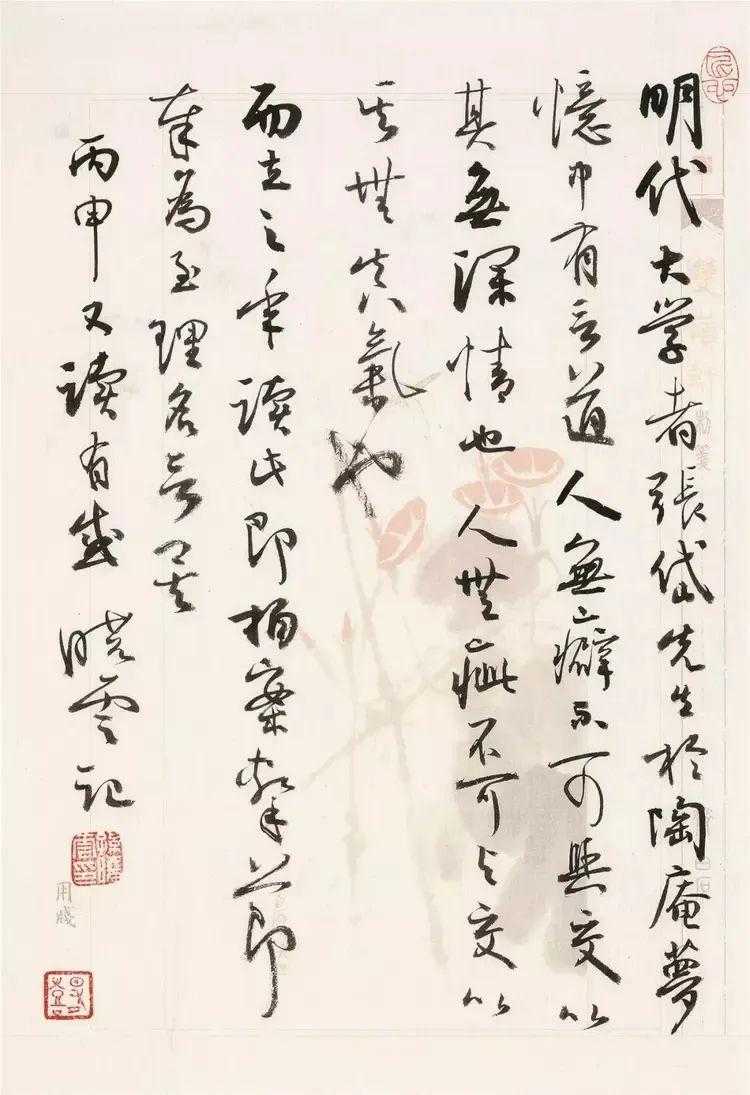 明代大学者張岱先生於陶庵夢
憶中有言道人無癖不可與交以
其無深情也人無疵不可与交以
其無真氣也
而立之年讀此即拍案擊
奉為至理名言矣
丙申又讀有感 曉雲記
用箋